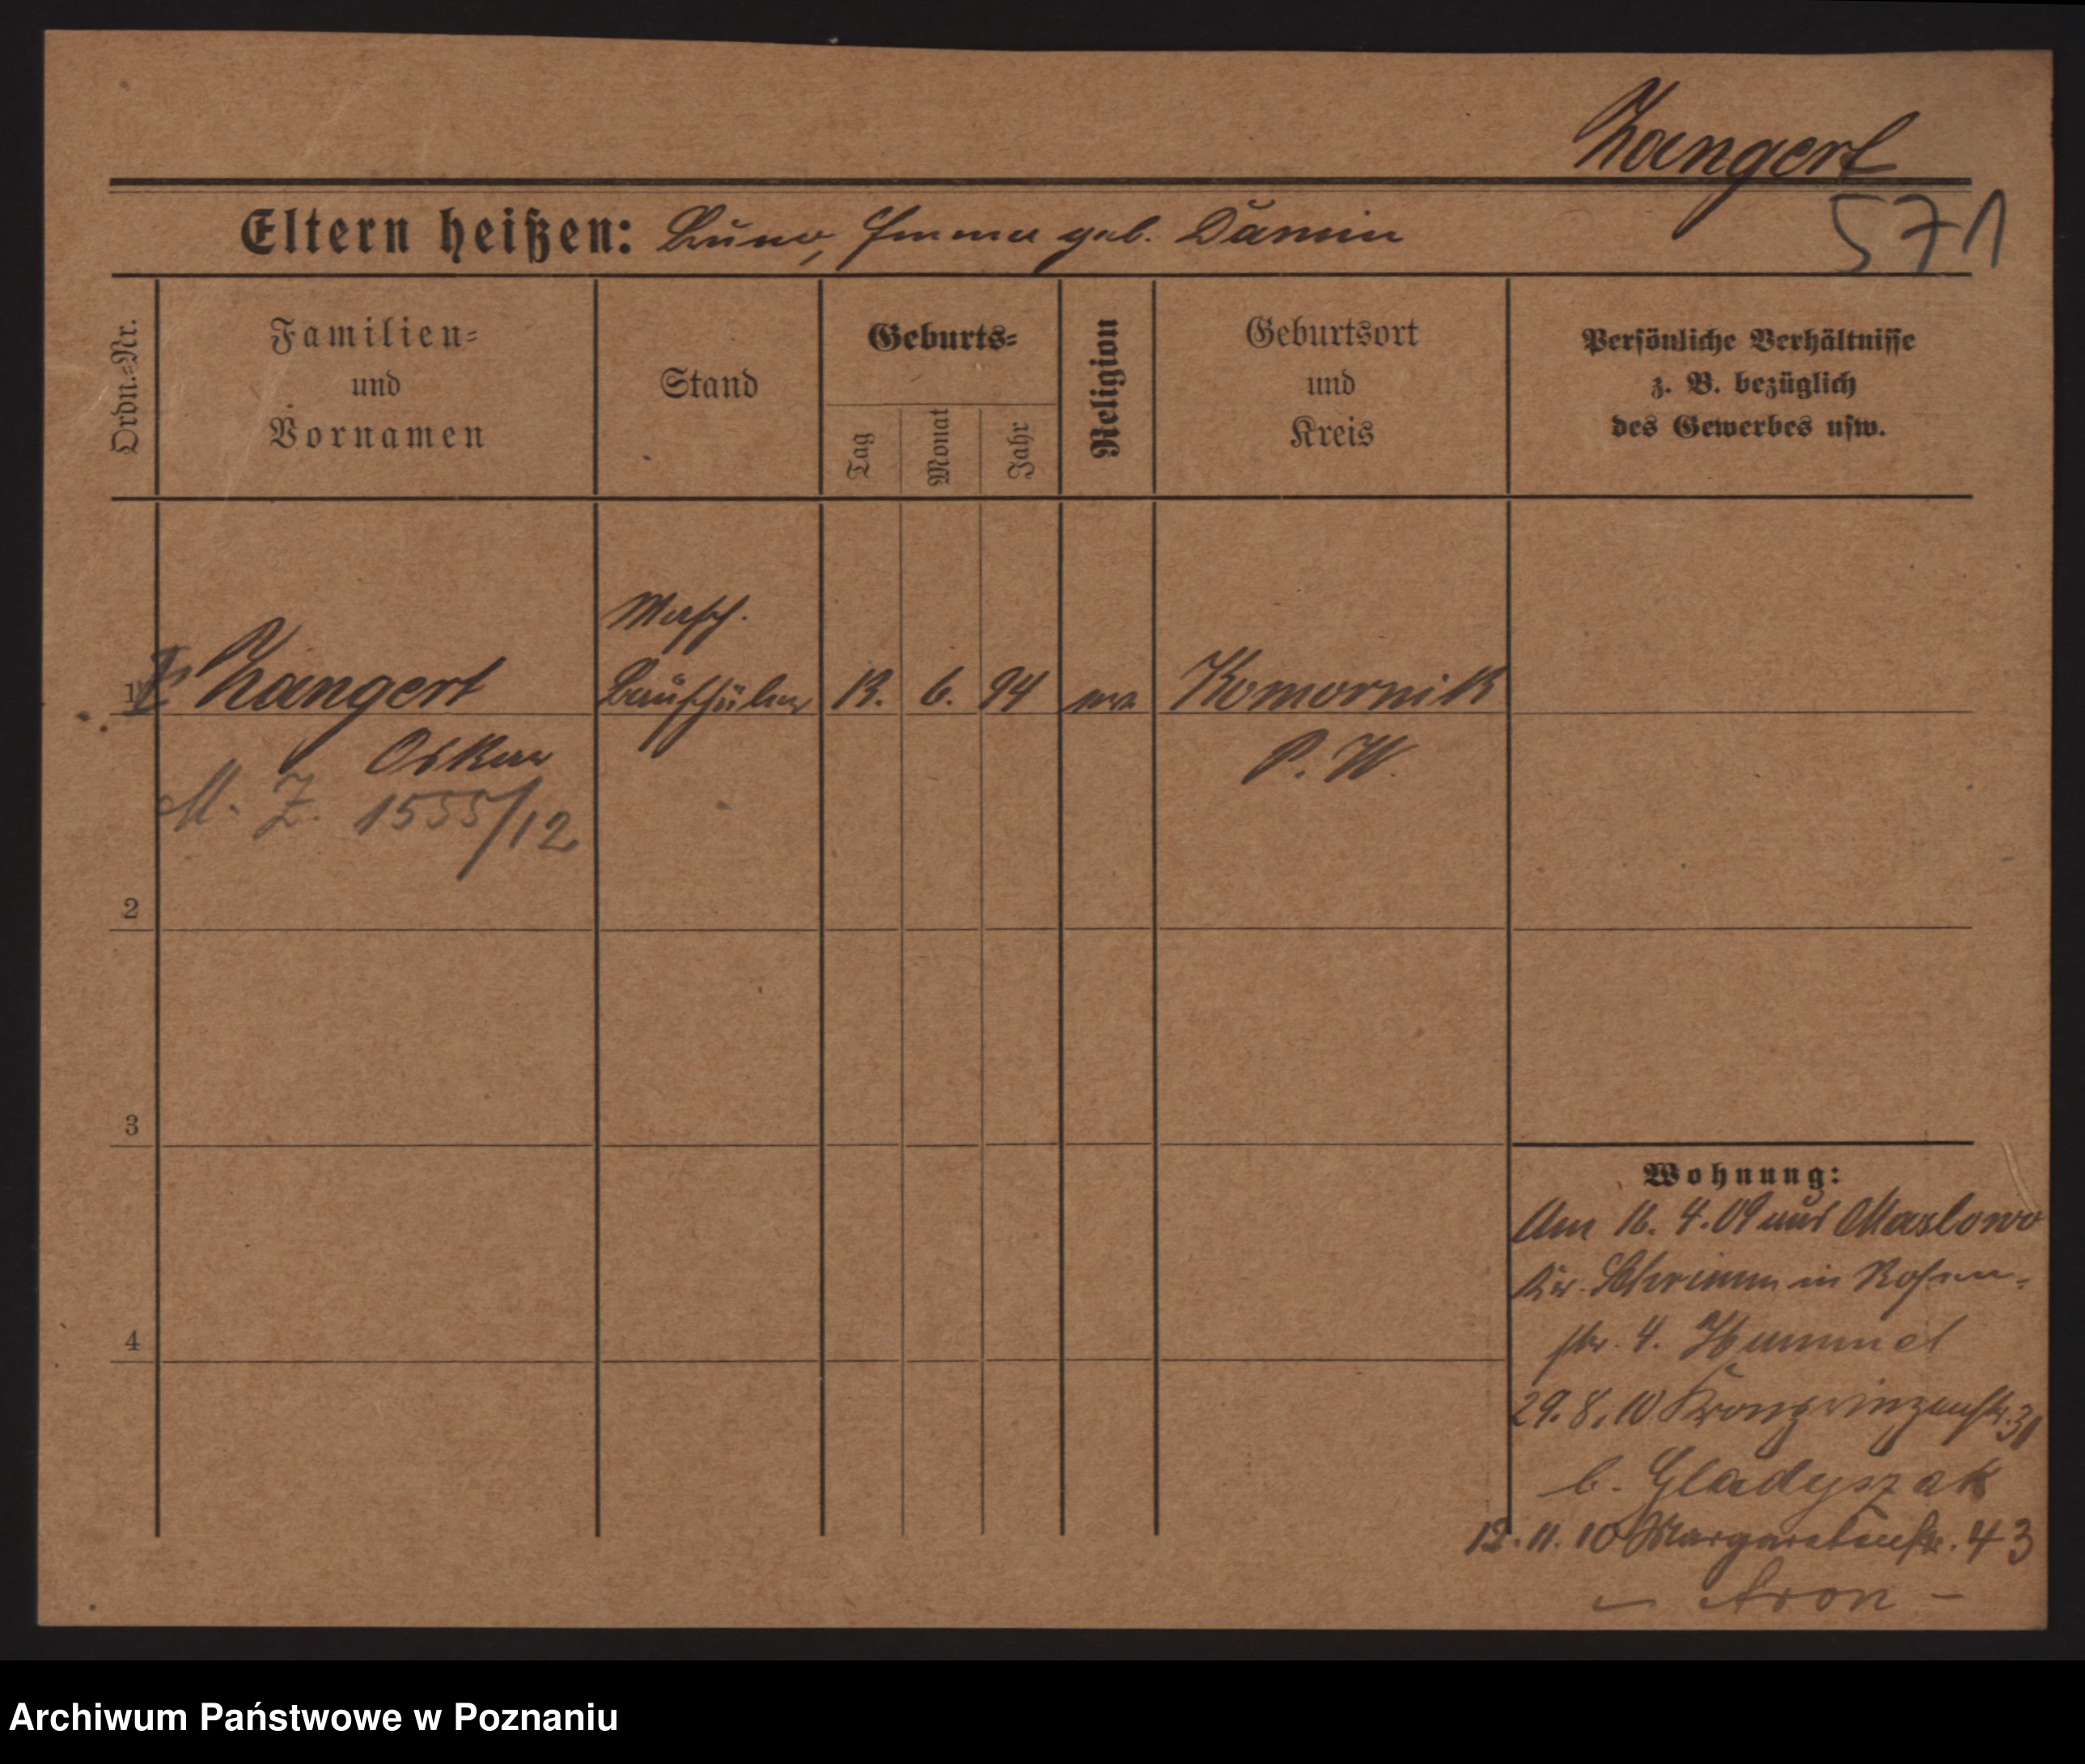 Zangert
571
Eltern heißen: Bruno, Emma geb. Damin
Ordn.=Nr.
Familien=
und
Vornamen
Stand
Geburts=
Tag
Monat
Jahr
Religion
Geburtsort
und
Kreis
Persönliche Verhältnisse
z. B. bezüglich
des Gewerbes usw.
Masch.
1 Zangert Bauschüler 13. 6. 94 Komornik
Oskar P. W.
M. Z. 1555/12
2
3
4
Wohnung:
Am 16. 4. 09 aus Maslowo
Kr. Schrimm in Rosen=
str. 4. Hummel
29. 8. 10 Kronprinzenstr. 31
b. Gladyszak
12. 11. 10 Margaretenstr. 43
- Aron -
Archiwum Państwowe w Poznaniu